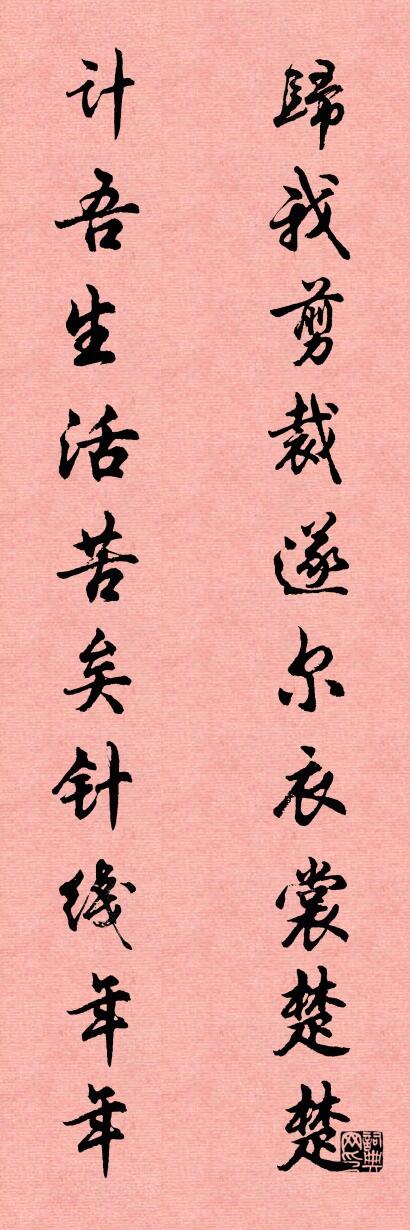 歸我剪裁遂尔衣裳楚楚
计吾生活苦矣针线年年